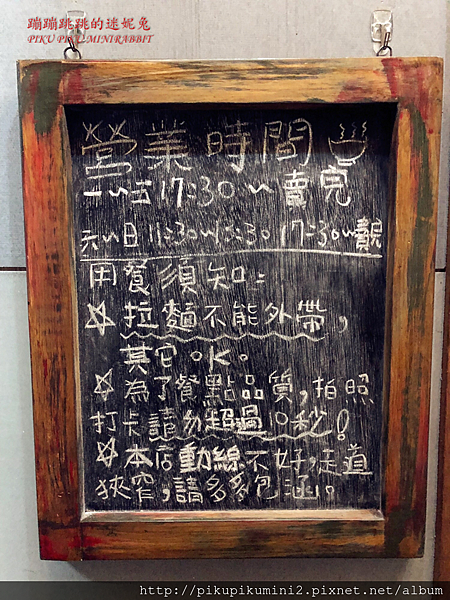 蹦蹦跳跳的迷妮兔
PIKU PIKU MINIRABBIT
營業時間
一~五 17:30~賣完
六~日 11:30~15:30 17:30~賣完
用餐須知:
☆拉麵不能外帶,
其它OK。
☆為了餐點品質,拍照
打卡請勿超過10秒!
☆本店動線不好,走道
狹窄,請多多包涵。
http://pikupikumini2.pixnet.net/album